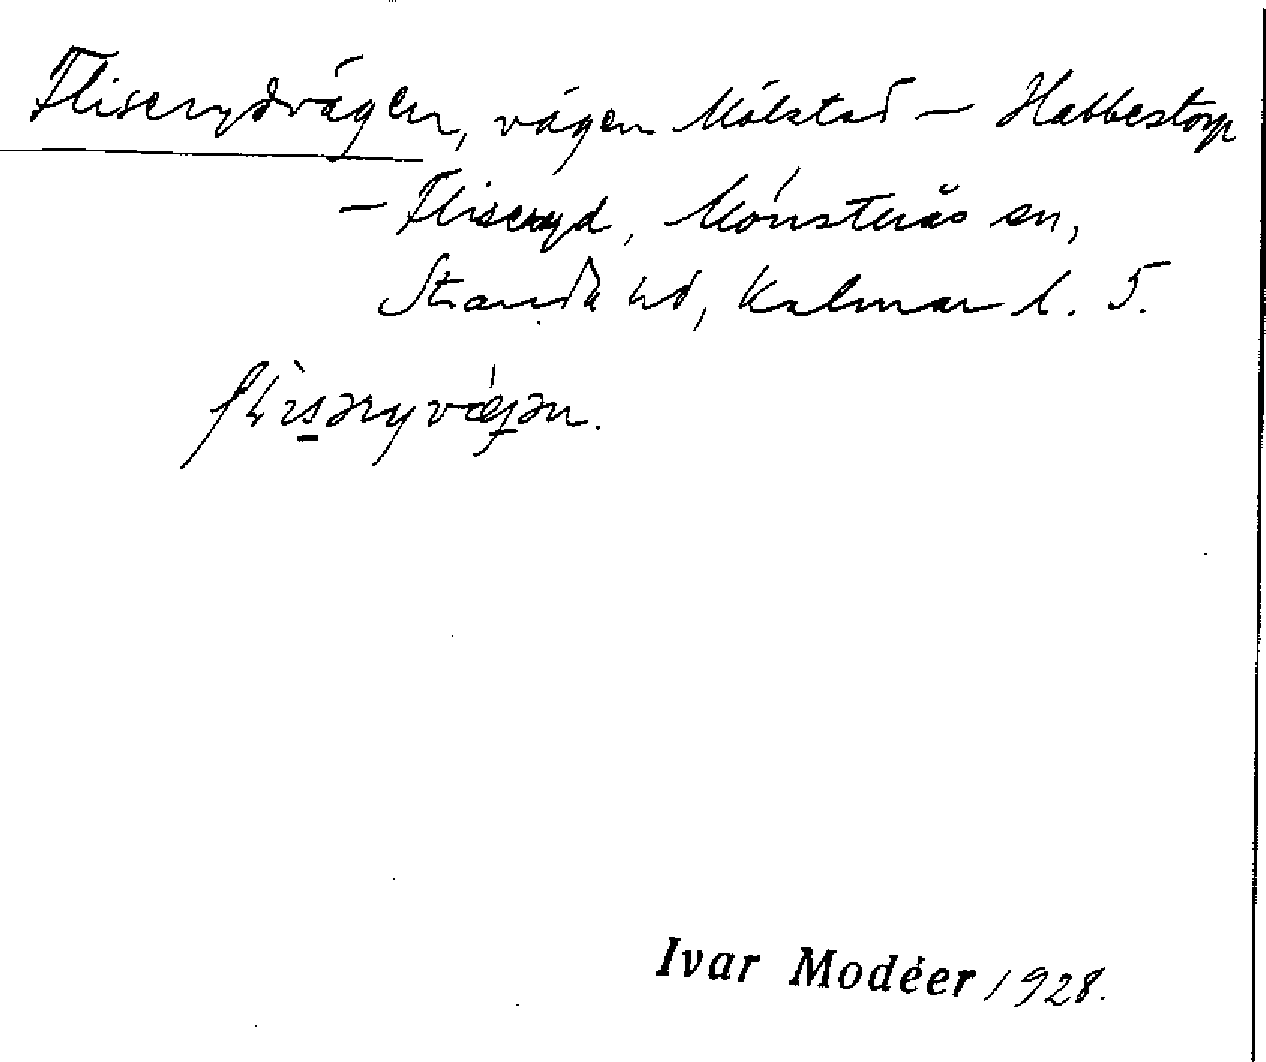 Fliserydvägen, vägen Mölstad – Habbestorp
– Fliseryd, Mönsterås sn,
Stranda hd, Kalmar l. 5.
flìsəryvǽgən.
Ivar Modéer 1928.